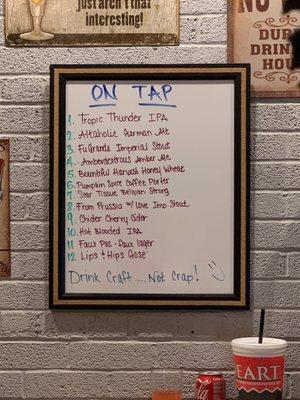 just aren't that
interesting!
NO
DURIN
DRINKI
HOUR
ON TAP
1. Tropic Thunder IPA
2. Altaholic German Alt
3. FuGrands Imperial Stout
4. Amberdextrous Amber Ale
5. Bountiful Harvest Honey Wheat
6. Pumpkin Spice Coffee Porter
7. Scar Tissue Belgian Strong
8. From Prussia w/ Love Imp. Stout
9. Chider Cherry Cider
10. Hot Blooded IPA
11 Faux Pas - faux lager
12 Lips & Hips Gose
Drink Craft.... Not Crap!
EART
Coca-Cola